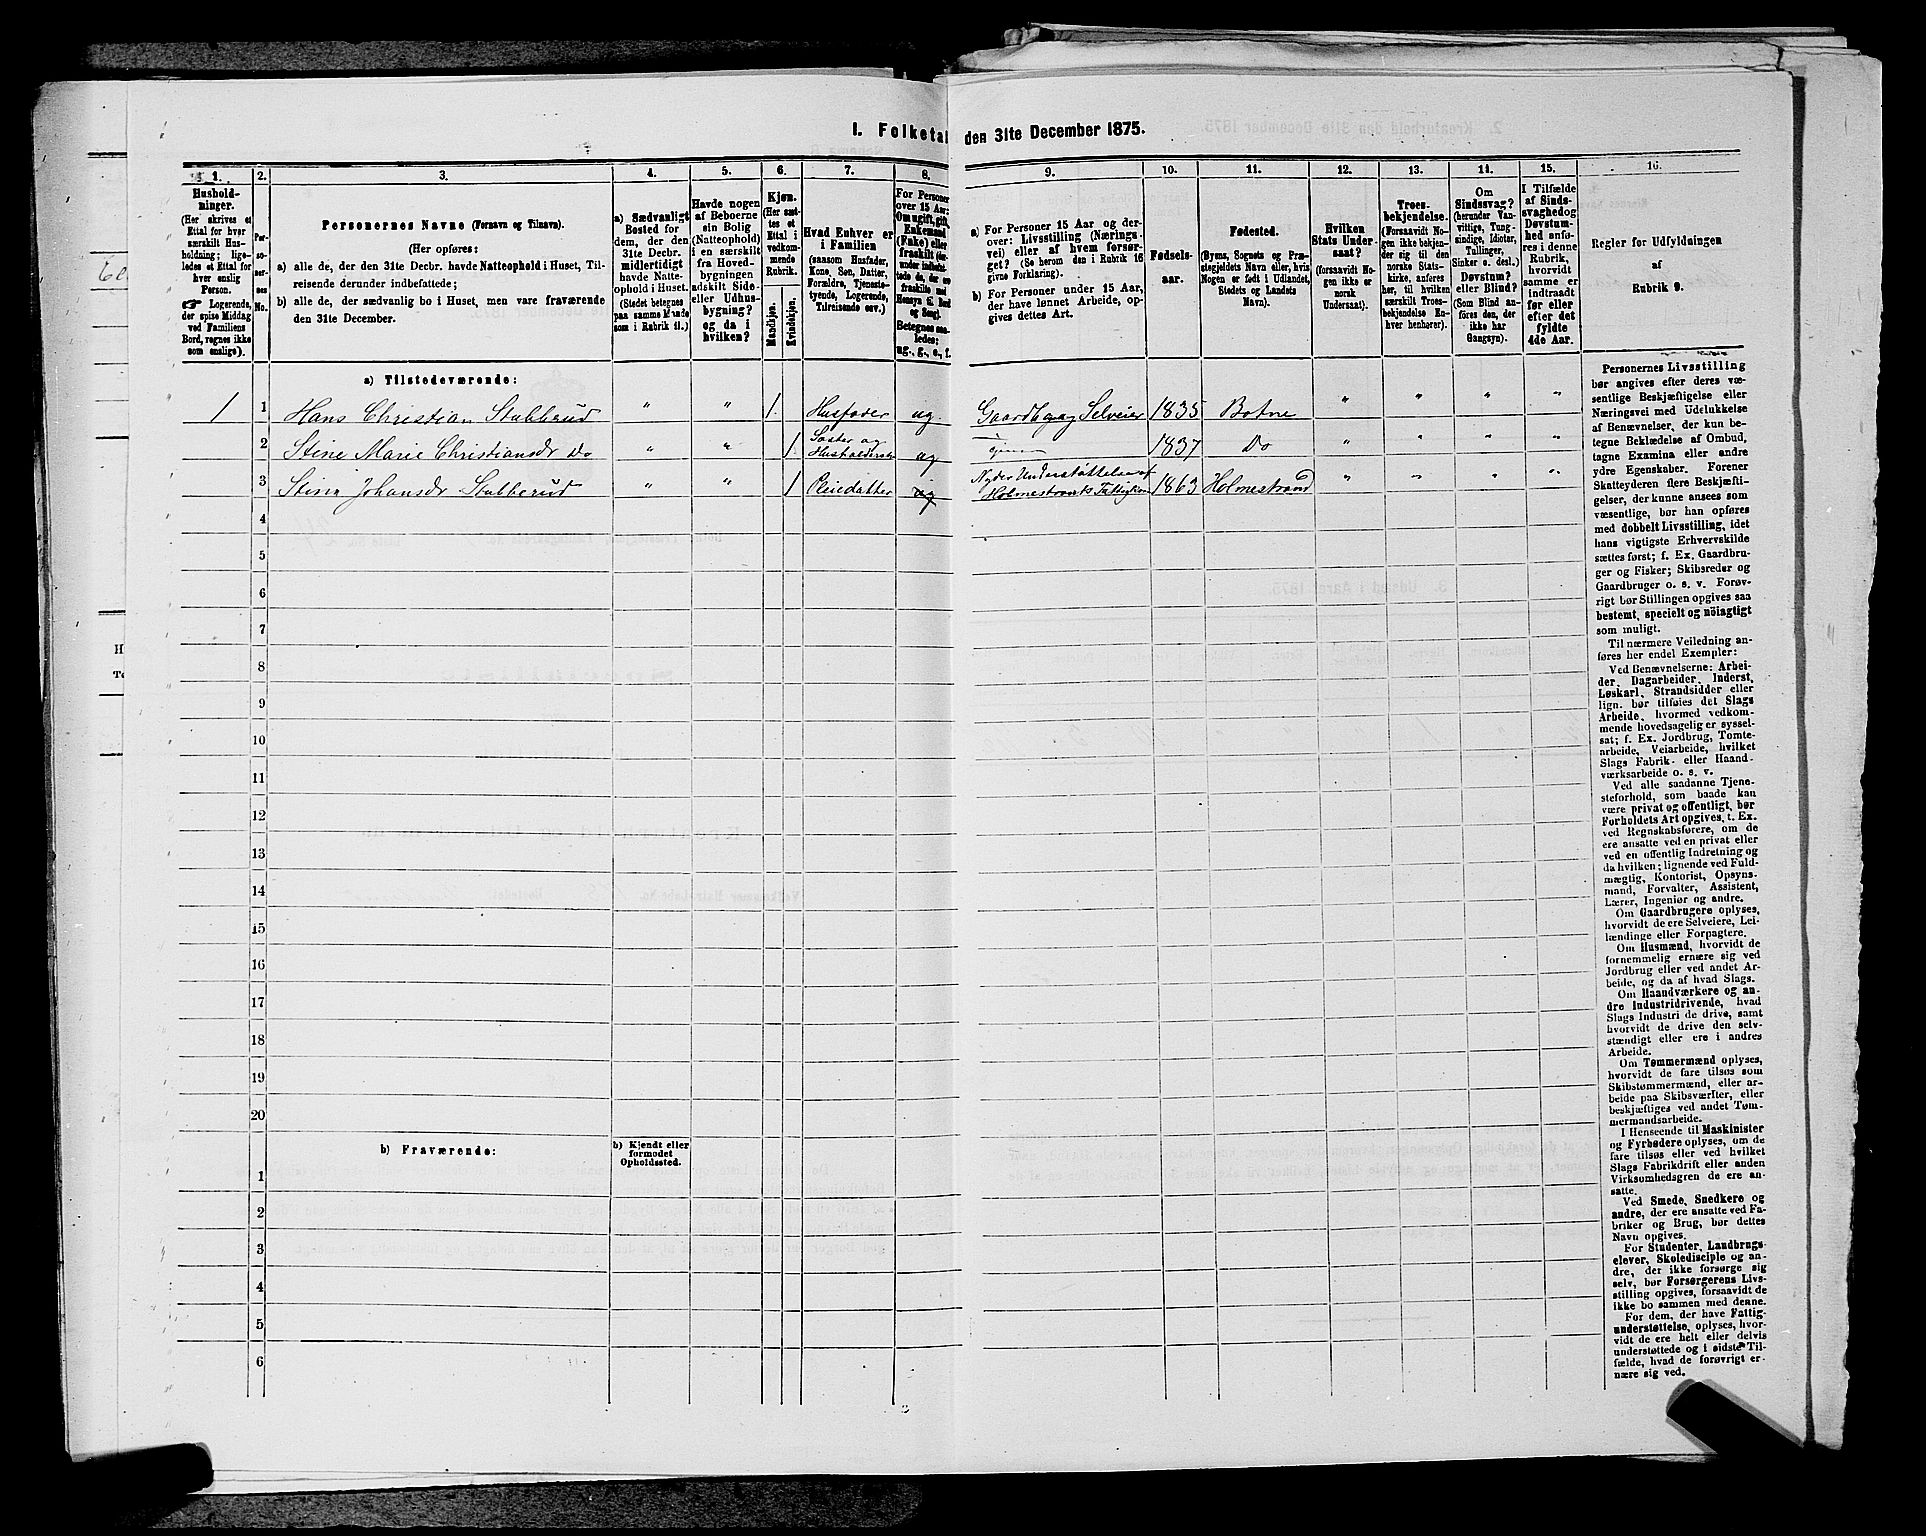 I. Folketal den 31te December 1875.
1. 2. 3. 4. 5. 6. 7. 8. 9. 10. 11. 12. 13. 14. 15. 16.
Hushold-
ninger.
(Her skrives et
Ettal for hver
særskilt Hus-
holdning; lige-
ledes et Ettal for
hver enslig
Person.
☞ Logerende,
der spise Middag
ved Familiens
Bord, regnes ikke
som enslige).
Per-
so-
ner-
nes
No.
Personernes Navne (Fornavn og Tilnavn).
(Her opføres:
a) alle de, der den 31te Decbr. havde Natteophold i Huset, Til-
reisende derunder indbefattede;
b) alle de, der sædvanlig bo i Huset, men vare fraværende
den 31te December.
a) Sædvanligt
Bosted for
dem, der den
31te Decbr.
midlertidigt
havde Natte-
ophold i Huset.
(Stedet betegnes
paa samme Maade
som i Rubrik 11.)
Havde nogen
af Beboerne
sin Bolig
(Natteophold)
i en særskilt
fra Hoved-
bygningen
adskilt Side-
eller Udhus-
bygning?
og da i
hvilken?
Kjøn.
(Her sæt-
tes et
Ettal i
vedkom-
mende
Rubrik.
Mandkjøn.
Kvindekjøn.
Hvad Enhver er
i Familien
(saasom Husfader,
Kone, Søn, Datter,
Forældre, Tjeneste-
tyende, Logerende,
Tilreisende osv.)
For Personer
over 15 Aar:
Om ugift, gift,
Enkemand
(Enke) eller
fraskilt
Betegnes saa-
ledes:
ug., g., e., f.
a) For Personer 15 Aar og der-
over: Livsstilling (Nærings-
vei) eller af hvem forsør-
get? (Se herom den i Rubrik 16
givne Forklaring).
b) For Personer under 15 Aar,
der have lønnet Arbeide, op-
gives dettes Art.
Fødsels-
aar.
Fødested.
(Byens, Sognets og Præ-
stegjeldets Navn eller, hvis
Nogen er født i Udlandet,
Stedets og Landets
Navn).
Hvilken
Stats Under-
saat?
(forsaavidt No-
gen ikke er
norsk
Undersaat).
Troes-
bekjendelse.
(Forsaavidt No-
gen ikke bekjen-
der sig til den
norske Stats-
kirke, anføres
her, til hvilken
særskilt Troes-
bekjendelse En-
hver henhører).
Om
Sindssvag?
(herunder Van-
vittige, Tung-
sindige, Idioter,
Tullinger,
Sinker o. desl.).
Døvstum?
eller Blind?
(Som Blind an-
føres den, der
ikke har
Gangsyn).
I Tilfælde
af Sinds-
svaghed og
Døvstum-
hed anfø-
res i denne
Rubrik,
hvorvidt
samme er
indtraadt
før eller
efter det
fyldte
4de Aar.
Regler for Udfyldningen
af
Rubrik 9.
a) Tilstedeværende:
1 1 Hans Christian Stubberud " " 1. Husfader ug. Gaardbrug Selveier 1835 Botne " " " "
2 Stine Marie Christiansdr Do " " 1. Søster og Husholderske ug 1837 Do " " " "
3 Stine Johansdr Stubberud " " 1 Pleiedatter ug Nyder Understøttelse af Holmestrands 1863 Holmestrand " " " "
4
5
6
7
8
9
10
11
12
13
14
15
16
17
18
19
20
b) Fraværende:
b) Kjendt eller
formodet
Opholdssted.
1
2
3
4
5
6
Personernes Livsstilling
bør angives efter deres væ-
sentlige Beskjæftigelse eller
Næringsvei med Udelukkelse
af Benævnelser, der kun be-
tegne Beklædelse af Ombud,
tagne Examina eller andre
ydre Egenskaber. Forener
Skatteyderen flere Beskjæfti-
gelser, der kunne ansees som
væsentlige, bør han opføres
med dobbelt Livsstilling, idet
hans vigtigste Erhvervskilde
sættes først; f. Ex. Gaardbru-
ger og Fisker; Skibsreder og
Gaardbruger o. s. v. Forøv-
rigt bør Stillingen opgives saa
bestemt, specielt og nøiagtigt
som muligt.
Til nærmere Veiledning an-
føres her endel Exempler:
Ved Benævnelserne: Arbei-
der, Dagarbeider, Inderst,
Løskarl, Strandsidder eller
lign. bør tilføies det Slags
Arbeide, hvormed vedkom-
mende hovedsagelig er syssel-
sat; f. Ex. Jordbrug, Tomte-
arbeide, Veiarbeide, hvilket
Slags Fabrik- eller Haand-
værksarbeide o. s. v.
Ved alle saadanne Tjene-
steforhold, som baade kan
være privat og offentligt, bør
Forholdets Art opgives, t. Ex.
ved Regnskabsførere, om de
ere ansatte ved en privat eller
ved en offentlig Indretning og
da hvilken; lignende ved Fuld-
mægtig, Kontorist, Opsyns-
mand, Forvalter, Assistent,
Lærer, Ingeniør og andre.
Om Gaardbrugere oplyses,
hvorvidt de ere Selveiere, Lei-
lændinge eller Forpagtere.
Om Husmænd, hvorvidt de
fornemmelig ernære sig ved
Jordbrug eller ved andet Ar-
beide, og da af hvad Slags.
Om Haandværkere og an-
dre Industridrivende, hvad
Slags Industri de drive, samt
hvorvidt de drive den selv-
stændigt eller ere i andres
Arbeide.
Om Tømmermænd oplyses,
hvorvidt de fare tilsøs som
Skibstømmermænd, eller ar-
beide paa Skibsværfter, eller
beskjæftiges ved andet Tøm-
mermandsarbeide.
I Henseende til Maskinister
og Fyrbødere oplyses, om de
fare tilsøs eller ved hvilket
Slags Fabrikdrift eller anden
Virksomhedsgren de ere an-
satte.
Ved Smede, Snedkere og
andre, der ere ansatte ved Fa-
briker og Brug, bør dettes
Navn opgives.
For Studenter, Landbrugs-
elever, Skoledisciple og an-
dre, der ikke forsørge sig
selv, bør Forsørgerens Livs-
stilling opgives, forsaavidt de
ikke bo sammen med denne.
For dem, der have Fattig-
understøttelse, oplyses, hvor-
vidt de ere helt eller delvis
understøttede og i sidste Til-
fælde, hvad de forøvrigt er-
nære sig ved.